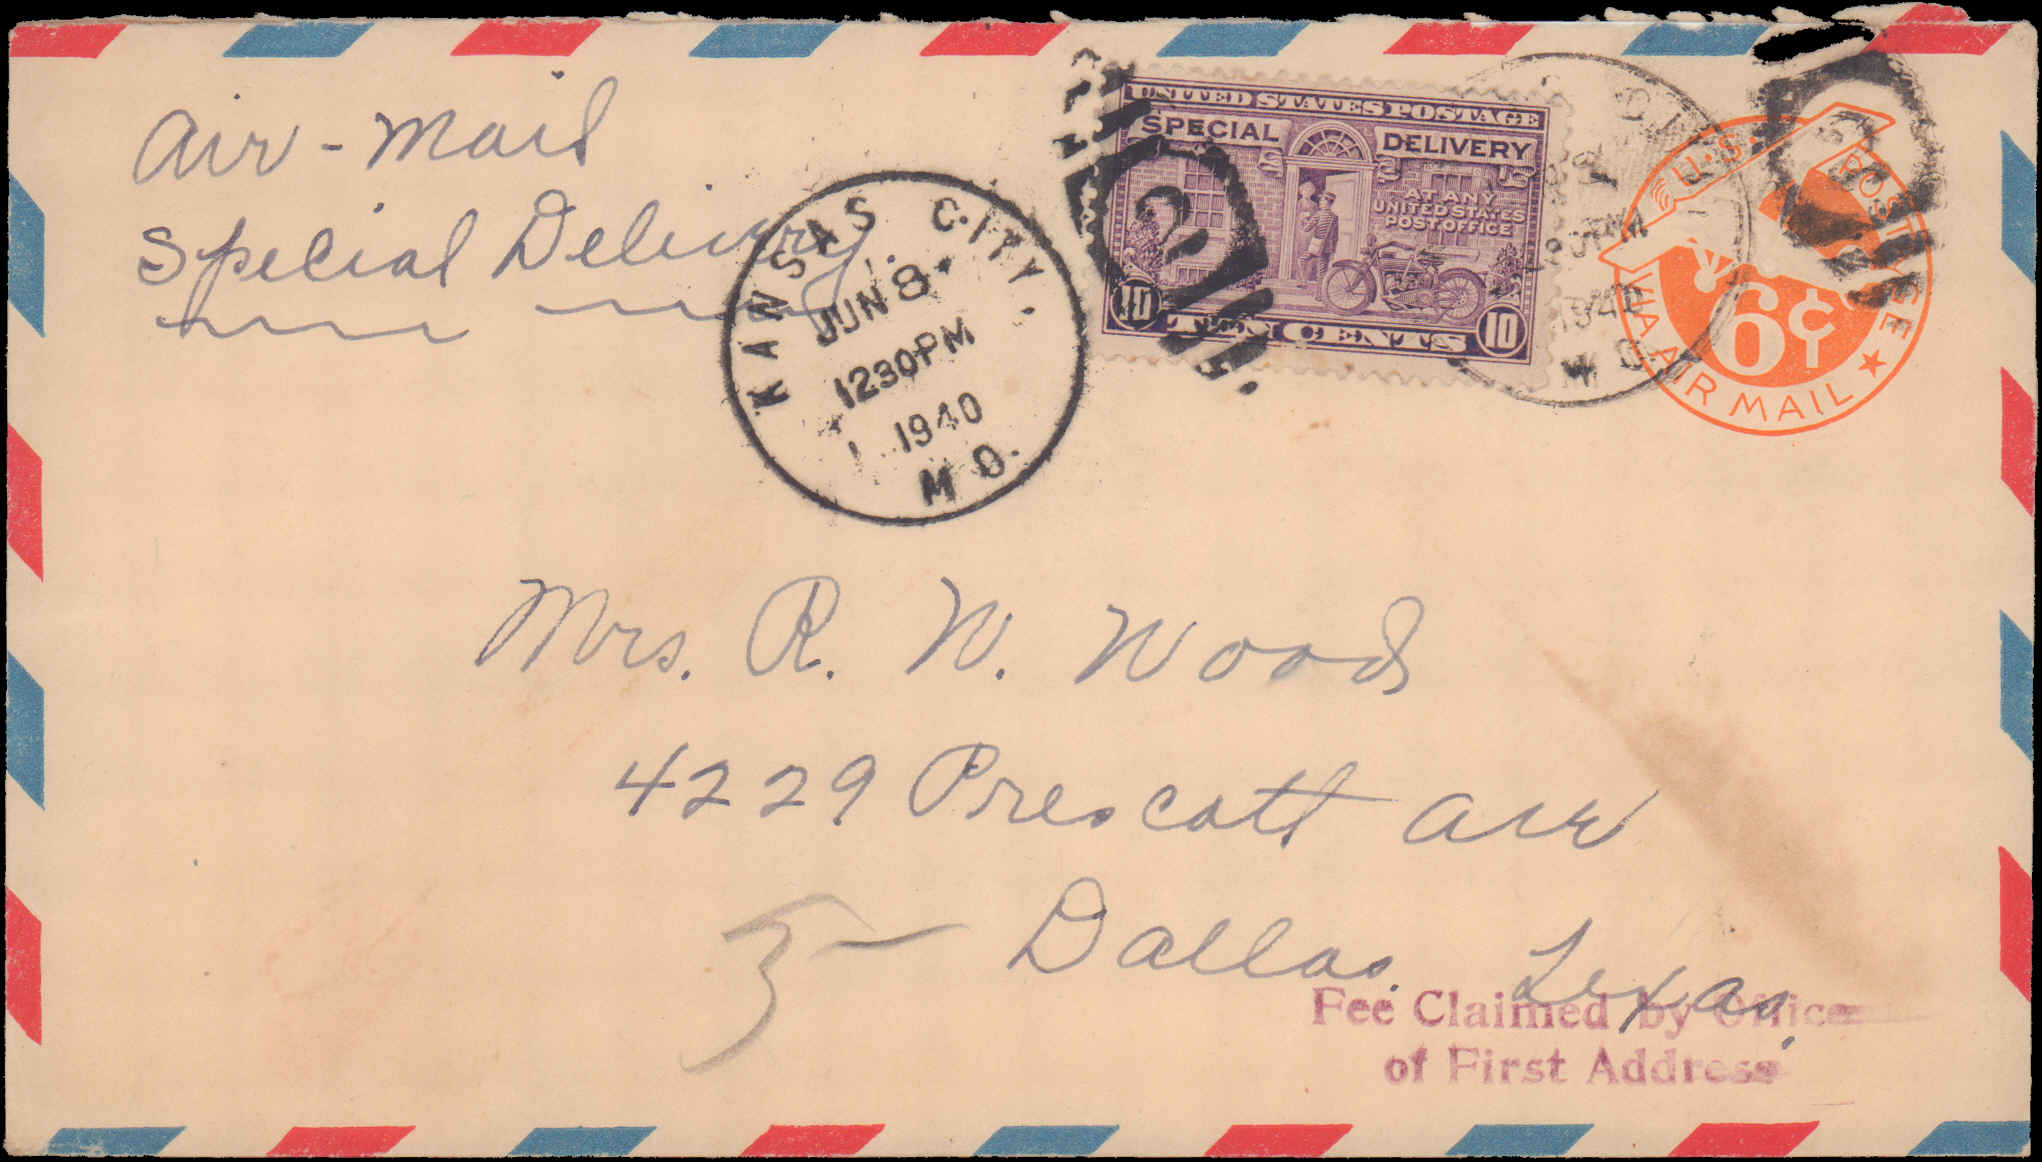 Air-Mail
Special Delivery
KANSAS CITY.
JUN 8
1230PM
1940
MO.
UNITED STATES POSTAGE
SPECIAL DELIVERY
AT ANY
UNITED STATES
POST OFFICE
10 TEN CENTS 10
1940
MO.
U.S. POSTAGE
6¢
VIA AIR MAIL
Mrs. R. W. Wood
4229 Prescott Ave
Dallas, Texas.
Fee Claimed by Office
of First Address